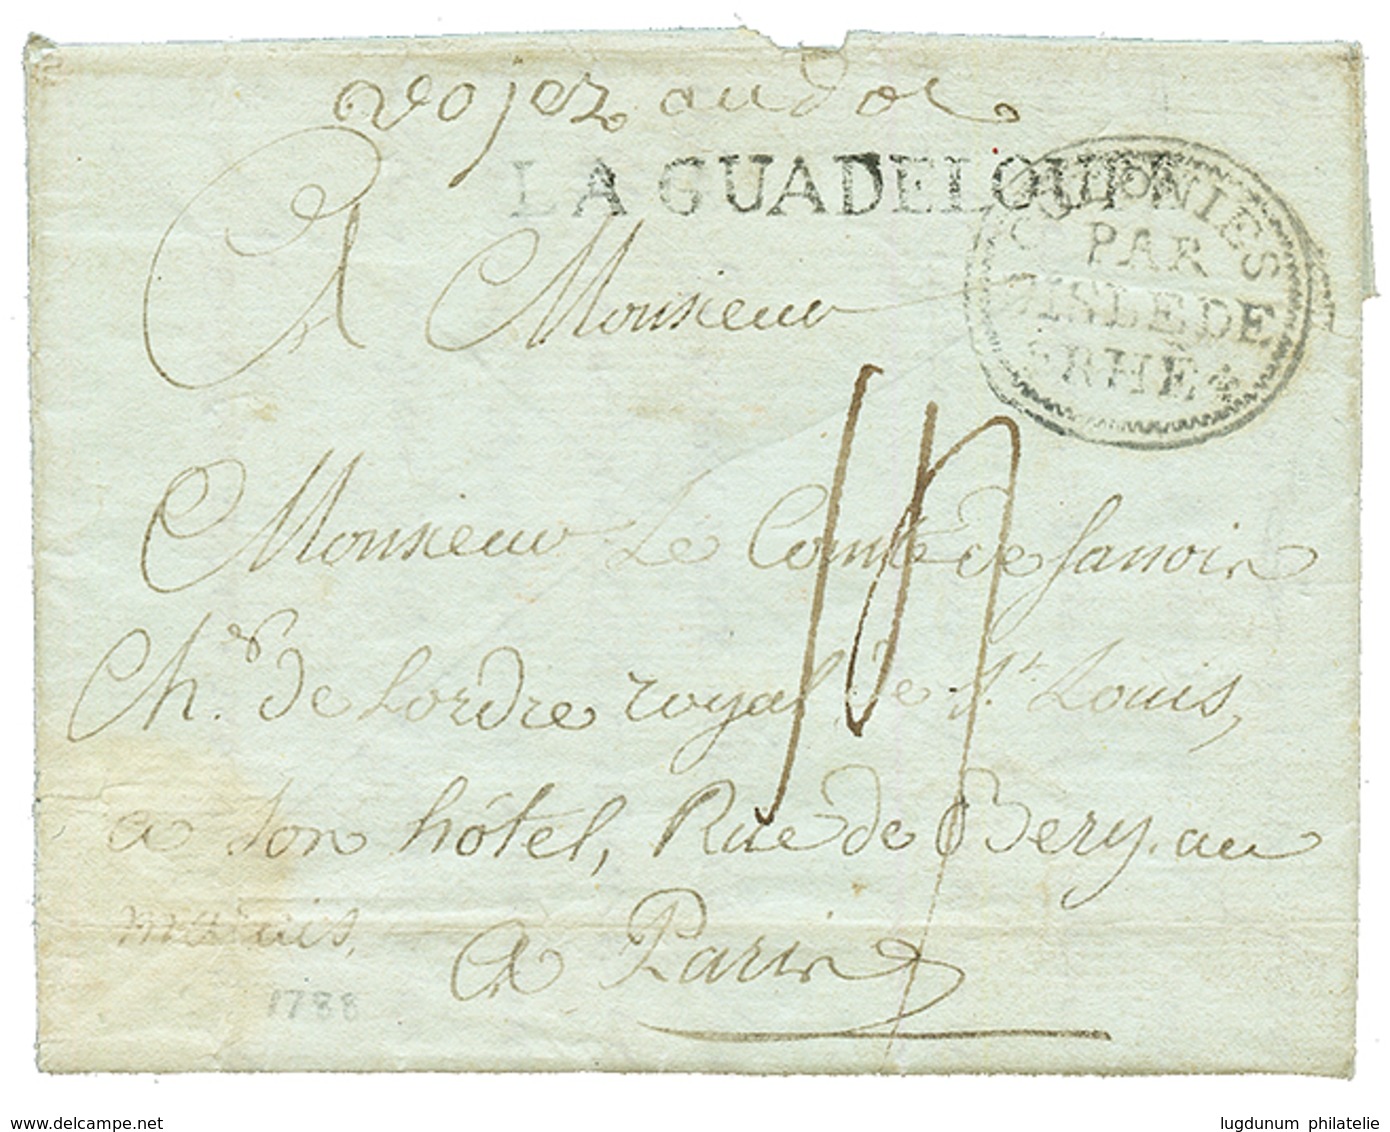 voyez au dos
LA GUADELOUPE
COLONIES
PAR
L'ISLE DE
RHÉ
A Monsieur
Monsieur Le Comte de Sannois
Chr. de Lordre royal de St. Louis,
a son hôtel, Rue de Bery. au
marais,
a Paris
1788
www.delcampe.net
lugdunum philatelie